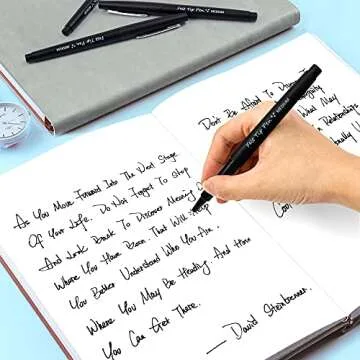 Felt Tip Pen MEDIUM
Felt Tip Pen MEDIUM
Felt Tip Pen MEDIUM
As You Move Forward Into The Next Stage
Of Your Life, Do Not Forget To Stop
And Look Back To Discover Meaning
Where You Have Been That Will Help
You Better Understand Who You Are.
Where You May Be Heading And How
You Can Get There.
— David
Don't Be Afraid To
What May